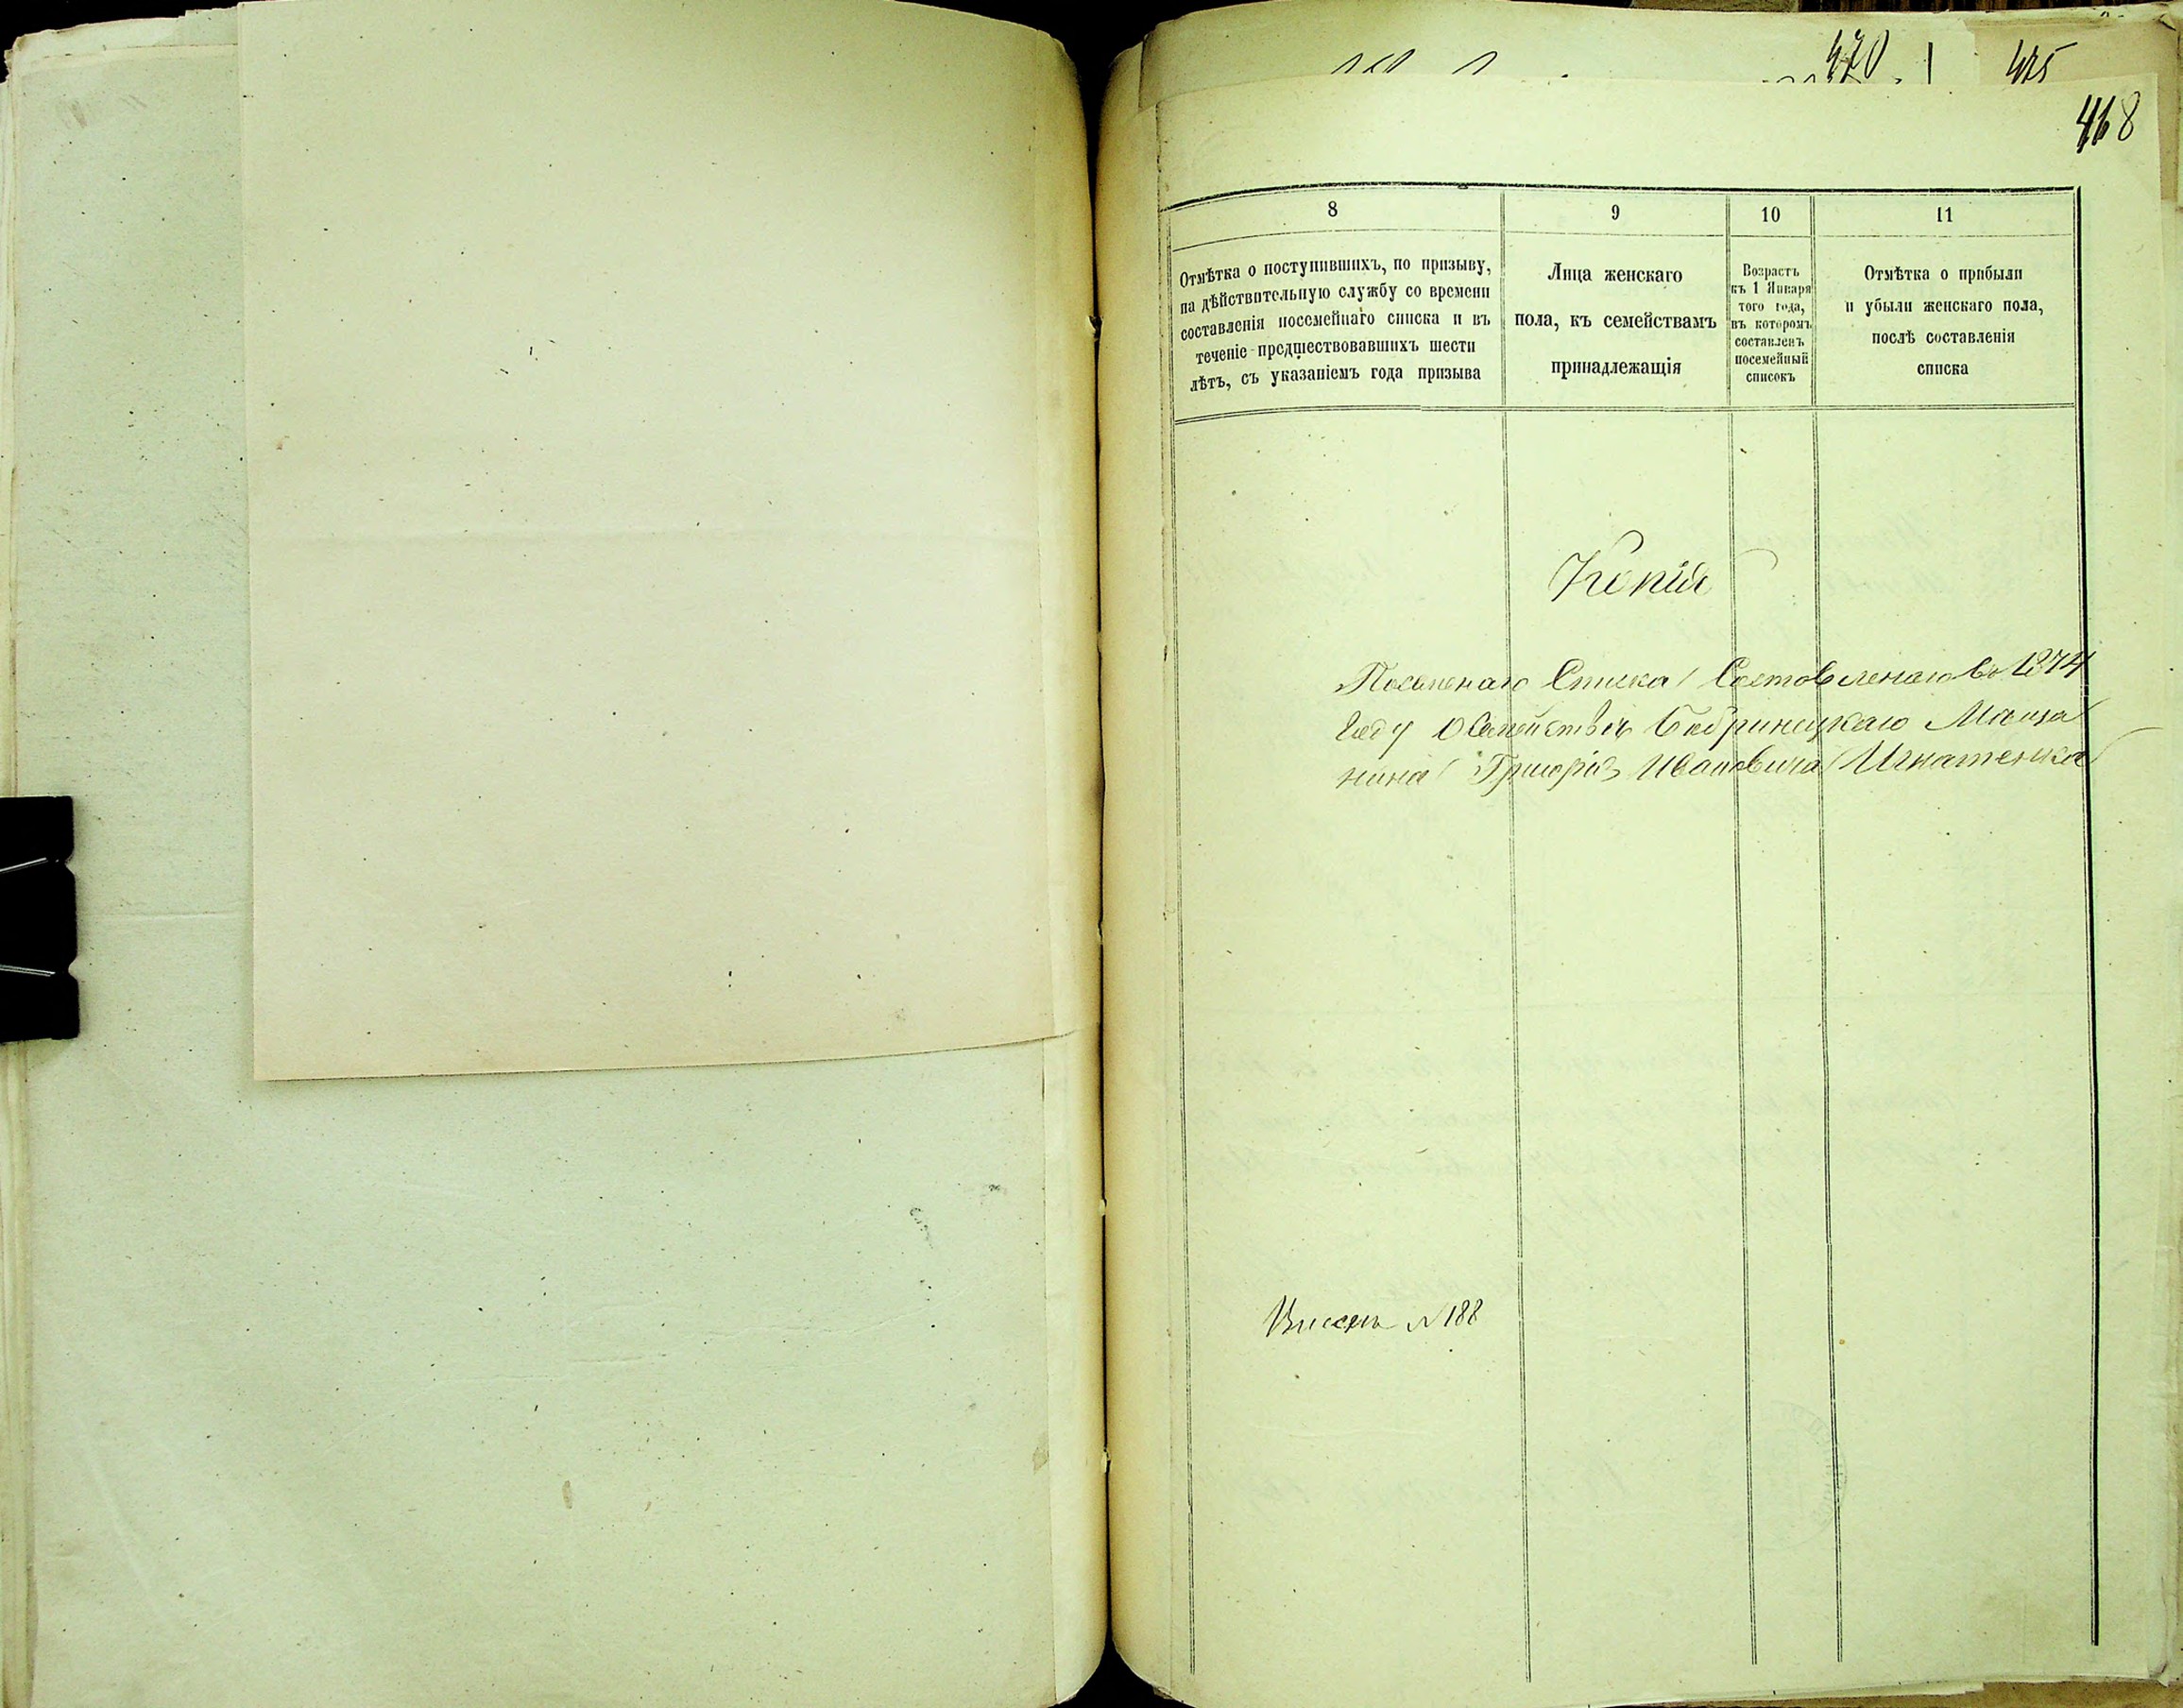 470 475
468
8
Отмѣтка о поступившихъ, по призыву,
на дѣйствительную службу со времени
составленія посемейнаго списка и въ
теченіе предшествовавшихъ шести
лѣтъ, съ указаніемъ года призыва
9
Лица женскаго
пола, къ семействамъ
принадлежащія
10
Возрастъ
къ 1 Января
того года,
въ которомъ
составленъ
посемейный
списокъ
11
Отмѣтка о прибыли
и убыли женскаго пола,
послѣ составленія
списка
Копія
Списка Составленаго въ 1874
Году О Семействѣ Бобринецкаго Мѣща
нина Григорія Ивановича Игнатенка
№ 188